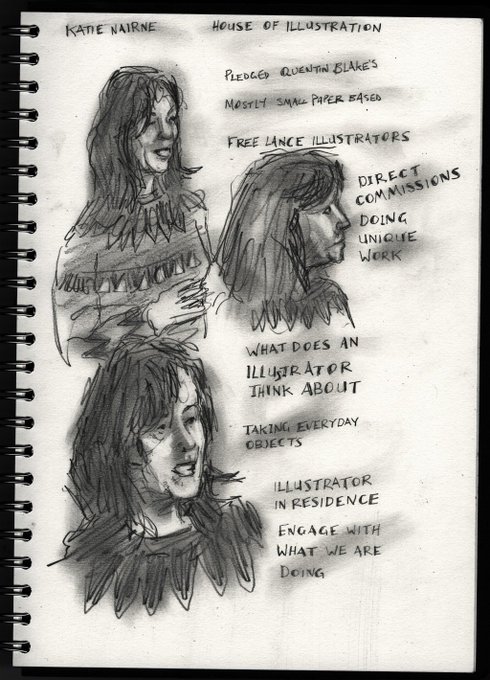 KATIE NAIRNE
HOUSE OF ILLUSTRATION
PLEDGED QUENTIN BLAKE'S
MOSTLY SMALL PAPER BASED
FREE LANCE ILLUSTRATORS
DIRECT
COMMISSIONS
DOING
UNIQUE
WORK
WHAT DOES AN
ILLUSTRATOR
THINK ABOUT
TAKING EVERYDAY
OBJECTS
ILLUSTRATOR
IN RESIDENCE
ENGAGE WITH
WHAT WE ARE
DOING